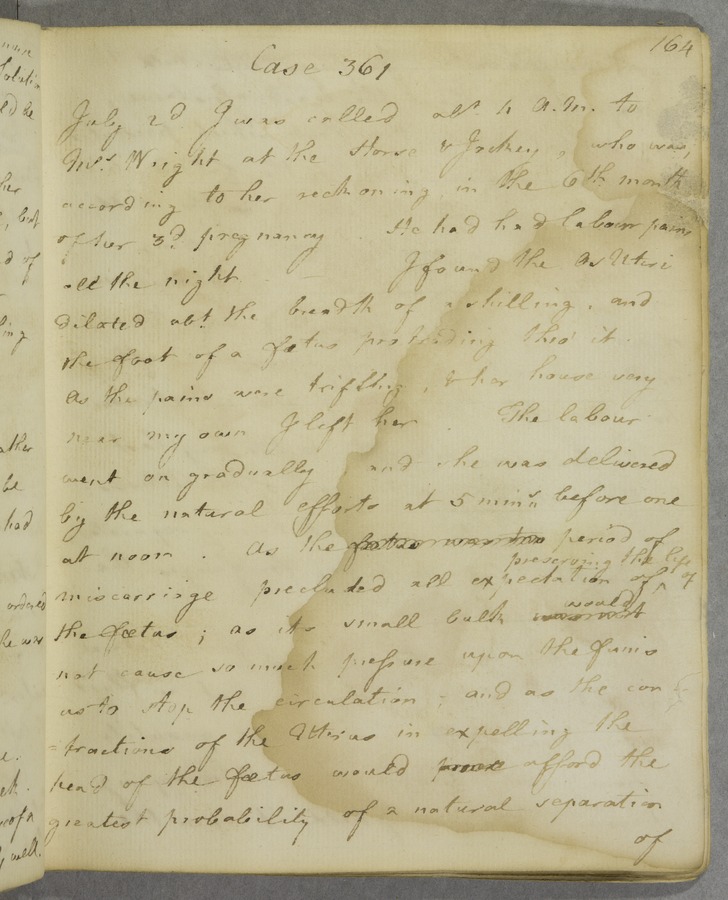 164
Case 361
July 2d I was called abt. 4 A.M. to
Mrs. Wright at the Horse & Jockey, who was,
according to her reckoning in the 6th month
of her 3d pregnancy. She had had labour pains
all the night. — I found the Os Uteri
dilated abt. the breadth of a shilling, and
the foot of a fœtus protruding thro' it.
As the pains were trifling, & her house very
near my own I left her. The labour
went on gradually and she was delivered
by the natural efforts at 5 mins. before one
at noon. As the period of
miscarriage precluded all expectation of preserving the life of
the fœtus; as its small bulk would
not cause so much pressure upon the funis
as to stop the circulation; and as the con-
-tractions of the Uterus in expelling the
head of the fœtus would afford the
greatest probability of a natural separation
of